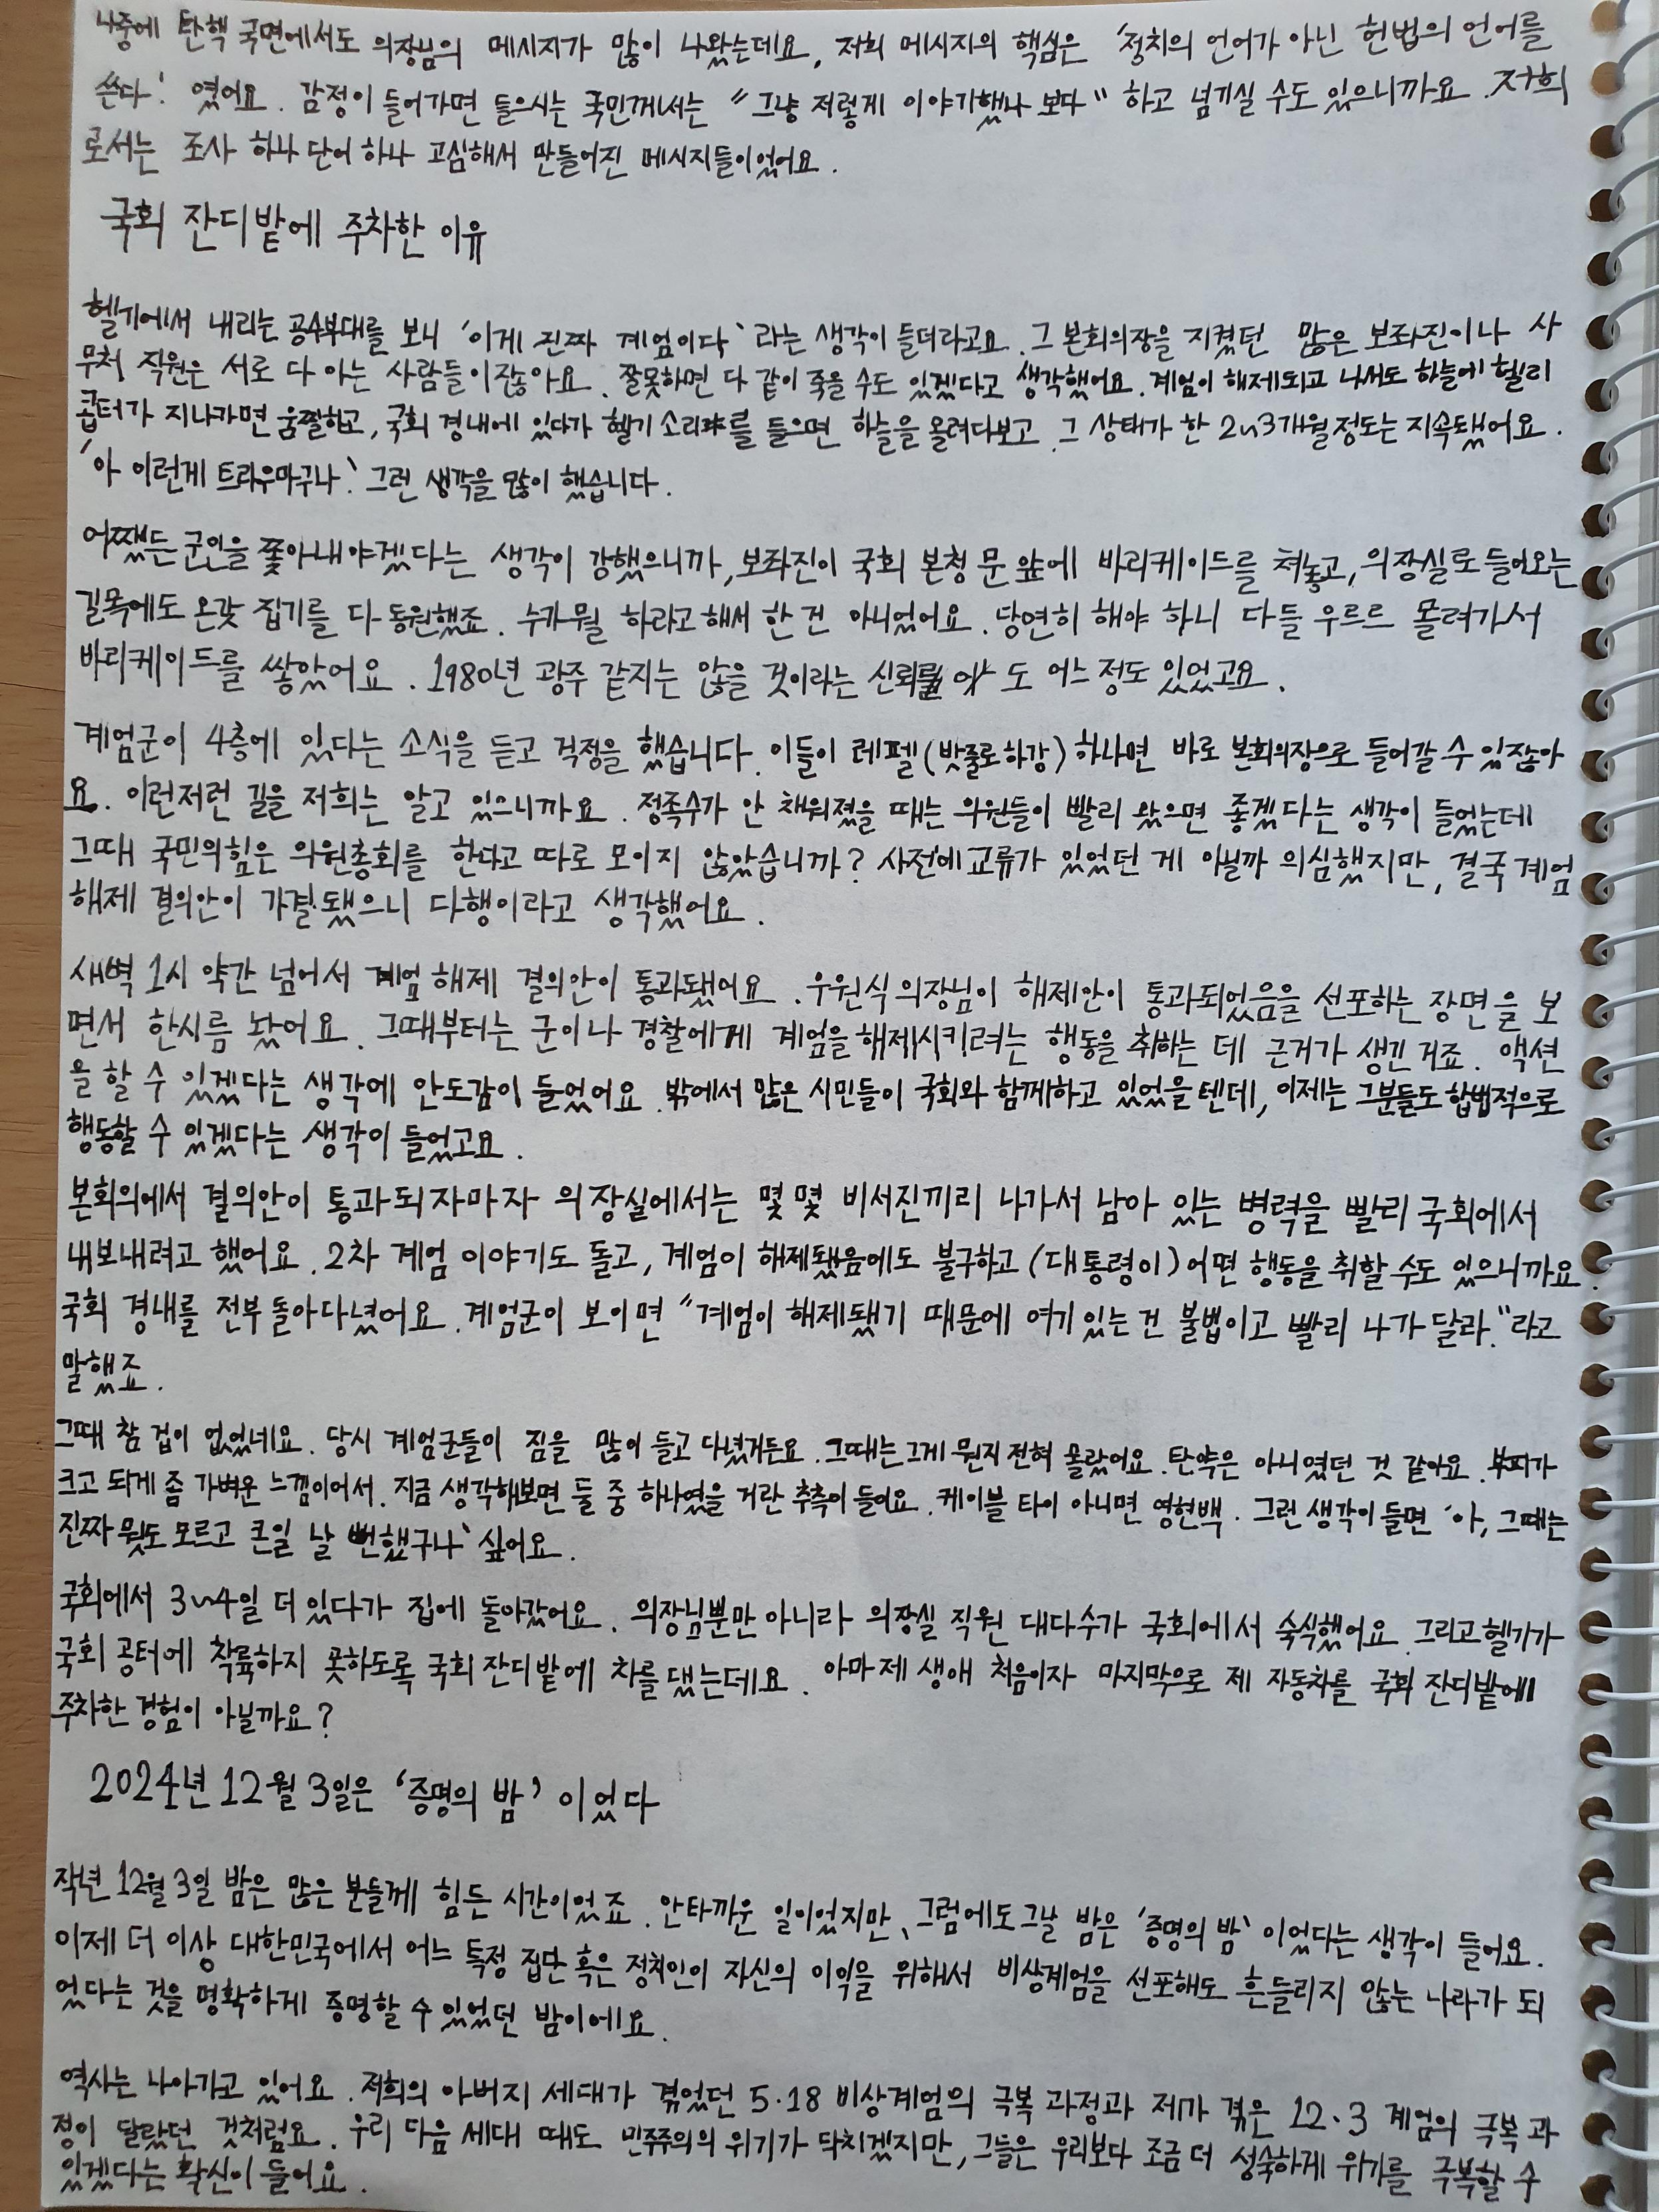 나중에 탄핵 국면에서도 의장님의 메시지가 많이 나왔는데요, 저희 메시지의 핵심은 '정치의 언어가 아닌 헌법의 언어를
쓴다.' 였어요. 감정이 들어가면 들으시는 국민께서는 "그냥 저렇게 이야기했나 보다" 하고 넘기실 수도 있으니까요. 저희
로서는 조사 하나 단어 하나 고심해서 만들어진 메시지들이었어요.
국회 잔디밭에 주차한 이유
헬기에서 내리는 공수부대를 보니 '이게 진짜 계엄이다'라는 생각이 들더라고요. 그 본회의장을 지켰던 많은 보좌진이나 사
무처 직원은 서로 다 아는 사람들이잖아요. 잘못하면 다 같이 죽을 수도 있겠다고 생각했어요. 계엄이 해제되고 나서도 하늘에 헬리
콥터가 지나가면 움찔하고, 국회 경내에 있다가 헬기 소리를 들으면 하늘을 올려다보고. 그 상태가 한 2~3개월 정도는 지속됐어요.
'아 이런게 트라우마구나.' 그런 생각을 많이 했습니다.
어쨌든 군인을 쫓아내야겠다는 생각이 강했으니까, 보좌진이 국회 본청 문 앞에 바리케이드를 쳐놓고, 의장실로 들어오는
길목에도 온갖 집기를 다 동원했죠. 누가 뭘 하라고 해서 한 건 아니었어요. 당연히 해야 하니 다들 우르르 몰려가서
바리케이드를 쌓았어요. 1980년 광주 같지는 않을 것이라는 신뢰 도 어느 정도 있었고요.
계엄군이 4층에 있다는 소식을 듣고 걱정을 했습니다. 이들이 레펠(밧줄로 하강) 하나면 바로 본회의장으로 들어갈 수 있잖아
요. 이런저런 길을 저희는 알고 있으니까요. 정족수가 안 채워졌을 때는 의원들이 빨리 왔으면 좋겠다는 생각이 들었는데
그때 국민의힘은 의원총회를 한다고 따로 모이지 않았습니까? 사전에 교류가 있었던 게 아닐까 의심했지만, 결국 계엄
해제 결의안이 가결됐으니 다행이라고 생각했어요.
새벽 1시 약간 넘어서 계엄 해제 결의안이 통과됐어요. 우원식 의장님이 해제안이 통과되었음을 선포하는 장면을 보
면서 한시름 놨어요. 그때부터는 군이나 경찰에게 계엄을 해제시키려는 행동을 취하는 데 근거가 생긴 거죠. 액션
을 할 수 있겠다는 생각에 안도감이 들었어요. 밖에서 많은 시민들이 국회와 함께하고 있었을 텐데, 이제는 그분들도 합법적으로
행동할 수 있겠다는 생각이 들었고요.
본회의에서 결의안이 통과되자마자 의장실에서는 몇몇 비서진끼리 나가서 남아 있는 병력을 빨리 국회에서
내보내려고 했어요. 2차 계엄 이야기도 돌고, 계엄이 해제됐음에도 불구하고 (대통령이) 어떤 행동을 취할 수도 있으니까요.
국회 경내를 전부 돌아다녔어요. 계엄군이 보이면 "계엄이 해제됐기 때문에 여기 있는 건 불법이고 빨리 나가 달라."라고
말했죠.
그때 참 겁이 없었네요. 당시 계엄군들이 짐을 많이 들고 다녔거든요. 그때는 그게 뭔지 전혀 몰랐어요. 탄약은 아니였던 것 같아요. 부피가
크고 되게 좀 가벼운 느낌이어서. 지금 생각해보면 둘 중 하나였을 거란 추측이 들어요. 케이블 타이 아니면 영현백. 그런 생각이 들면 '아, 그때는
진짜 뭣도 모르고 큰일 날 뻔했구나' 싶어요.
국회에서 3~4일 더 있다가 집에 돌아갔어요. 의장님뿐만 아니라 의장실 직원 대다수가 국회에서 숙식했어요. 그리고 헬기가
국회 공터에 착륙하지 못하도록 국회 잔디밭에 차를 댔는데요. 아마 제 생애 처음이자 마지막으로 제 자동차를 국회 잔디밭에
주차한 경험이 아닐까요?
2024년 12월 3일은 '증명의 밤' 이었다
작년 12월 3일 밤은 많은 분들께 힘든 시간이었죠. 안타까운 일이었지만, 그럼에도 그날 밤은 '증명의 밤'이었다는 생각이 들어요.
이제 더 이상 대한민국에서 어느 특정 집단 혹은 정치인이 자신의 이익을 위해서 비상계엄을 선포해도 흔들리지 않는 나라가 되
었다는 것을 명확하게 증명할 수 있었던 밤이에요.
역사는 나아가고 있어요. 저희의 아버지 세대가 겪었던 5·18 비상계엄의 극복 과정과 제가 겪은 12·3 계엄의 극복 과
정이 달랐던 것처럼요. 우리 다음 세대 때도 민주주의의 위기가 닥치겠지만, 그들은 우리보다 조금 더 성숙하게 위기를 극복할 수
있겠다는 확신이 들어요.